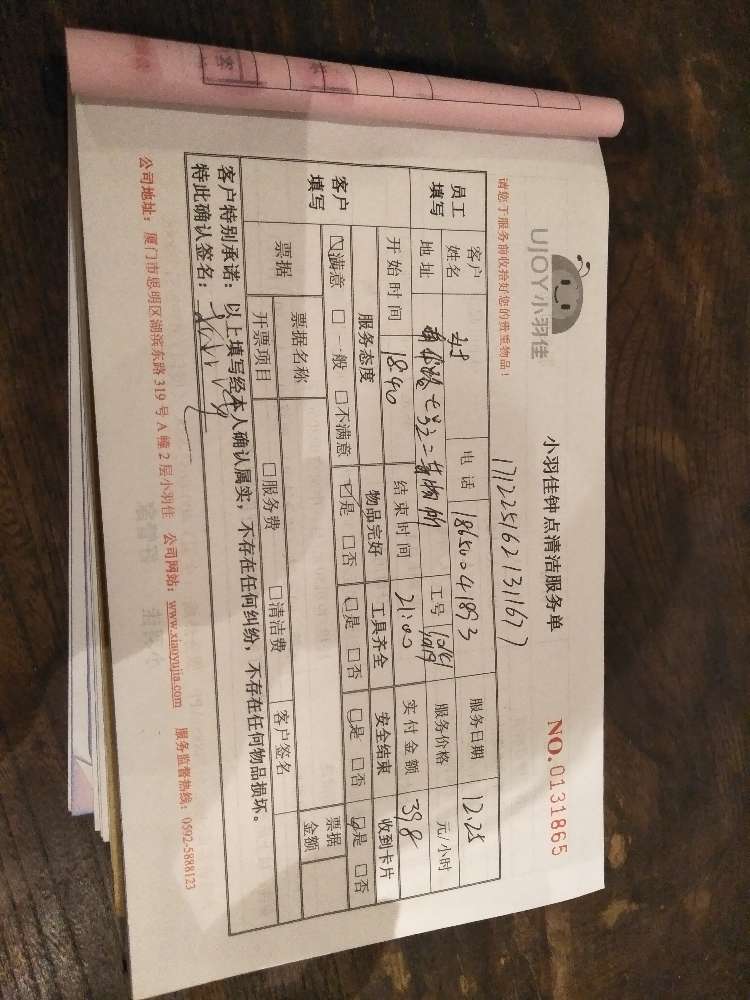 UJOY小羽佳
小羽佳钟点清洁服务单
NO.0131865
请您于服务前收拾好您的贵重物品！
1712251621311677
员工填写
客户姓名 电话 18650041893 服务日期 12.25
地址 工号 服务价格 元/小时
开始时间 18:40 结束时间 21:00 实付金额 398
客户填写
服务态度 物品完好 工具齐全 安全结束 收到卡片
☑满意 □一般 □不满意 ☑是 □否 ☑是 □否 ☑是 □否 ☑是 □否
票据 票据名称 票据金额
开票项目 □服务费 □清洁费 客户签名
客户特别承诺：以上填写经本人确认属实，不存在任何纠纷，不存在任何物品损坏。
特此确认签名：
公司地址：厦门市思明区湖滨东路319号A幢2层小羽佳 公司网站：www.xiaoyujia.com 服务监督热线：0592-5888123